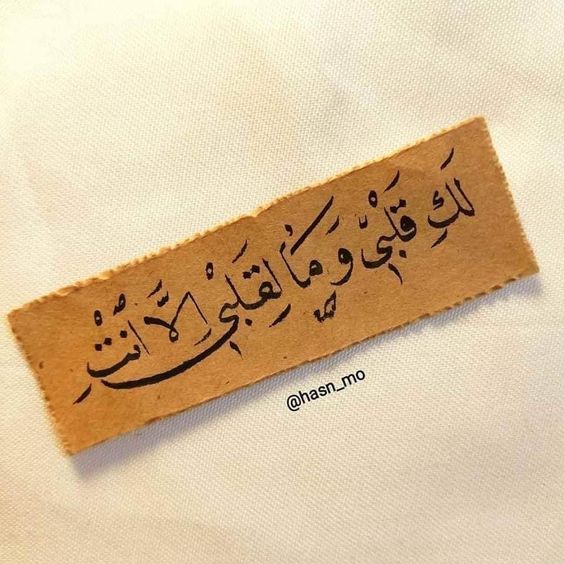 لَكِ قَلْبِي وَ مَا لِقَلْبِي إِلَّا أَنْتِ
@hasn_mo